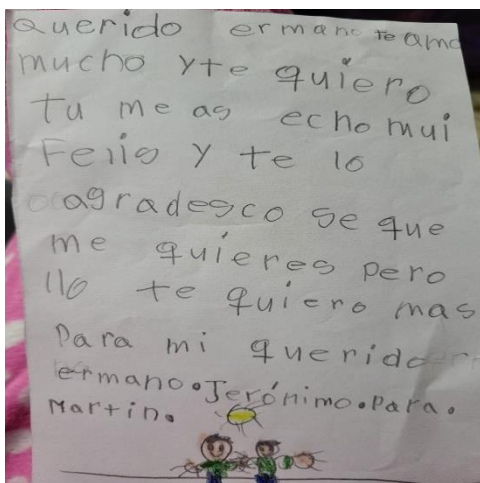 Querido ermano te amo
mucho y te quiero
tu me as echo mui
Feliis y te lo
agradesco se que
me quieres pero
llo te quiero mas
Para mi querido
ermano.Jerónimo.para.
Martin.